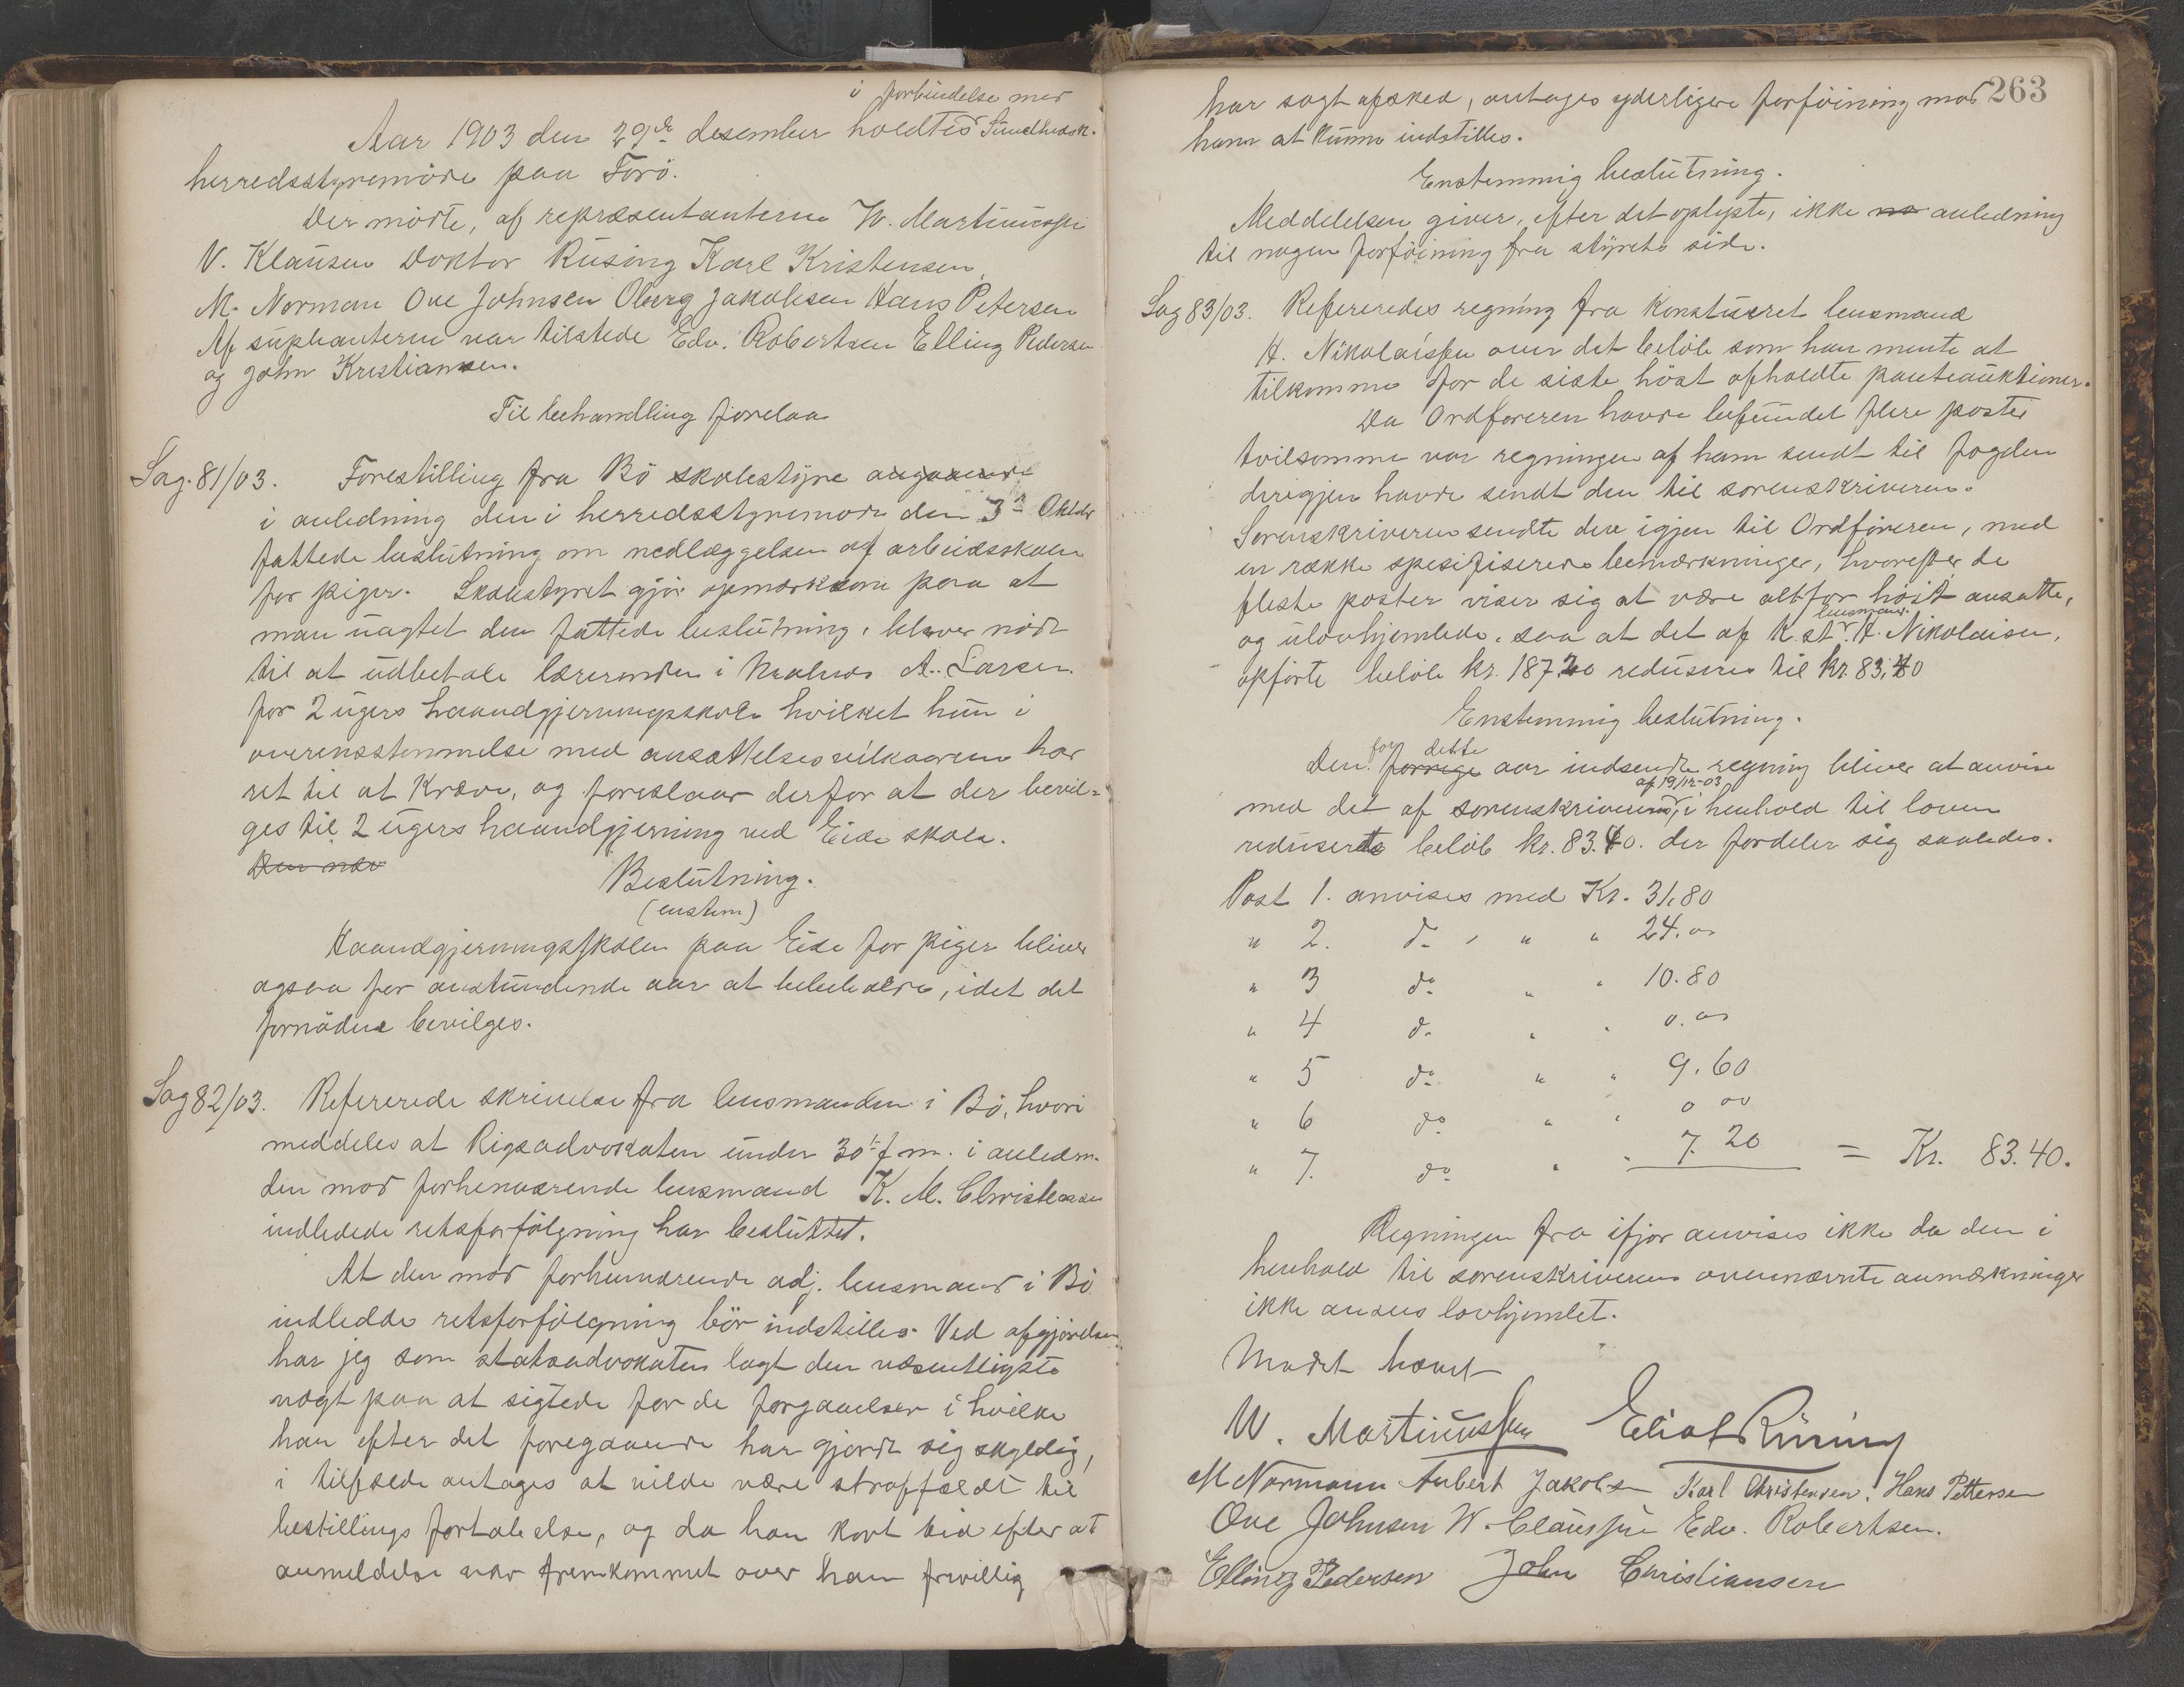 i forbindelse med
Aar 1903 den 29de desember holdtes Sundhedsk.
herredsstyremöde paa Forö.
Der mödte, af repræsentanterne W. Martinussen
V. Klausen Doktor Rüsing Karl Kristensen,
M. Norman Ove Johnsen Oberg Jakobsen Hans Petersen
Af suplianterne var tilstede Edv. Robertsen Elling Pedersen
og John Kristiansen.
Til behandling forelaa
Sag. 81/03. Forestilling fra Bö skolestyre angaaende
i anledning den i herredsstyremöde den 3de Oktbr
fattede beslutning om nedlæggelsen af arbeidsskolen
for piger. Skolestyret gjör opmerksom paa at
man uagtet den fattede beslutning, bliver nödt
til at udbetale lærerinden i Malnes A. Larsen
for 2 ugers haandgjerningsskole hvilket hun i
overensstemmelse med ansættelsesvilkaarene har
ret til at kræve, og foreslaar derfor at der bevil-
ges til 2 ugers haandgjerning ved Eide skole.
Den næv
Beslutning.
(enstem)
Haandgjerningsskolen paa Eide for piger bliver
ogsaa for anstundende aar at bibeholde, idet det
fornödne bevilges.
Sag 82/03. Refererede skrivelse fra lensmanden i Bö, hvori
meddeles at Rigsadvokaten under 30te f.m. i anledn.
den mod forhenværende lensmand K. M. Christensen
indledede retsforfölgning har besluttet.
At den mod forhenværende adj. lensmand i Bö
indledde retsforfölgning bör indstilles. Ved afgjörelsen
har jeg som statsadvokaten lagt den væsentligste
vægt paa at sigtede for de forgaaelser i hvilke
han efter det foregaaende har gjordt sig skyldig,
i tilfælde antages at vilde være straffældt til
bestillings fortabelse, og da han kort tid efter at
anmeldelse var fremkommet over ham frivillig
263
har sagt afsked, antages yderligere forföining mod
ham at kunne indstilles.
Enstemmig beslutning.
Meddelelsen giver, efter det oplyste, ikke no anledning
til nogen forföining fra styrets side.
Sag 83/03. Refereredes regning fra konstueret lensmand
H. Nikolaissen over det belöb som han mente at
tilkomme for de siste höst afholdte panteauktioner.
Da Ordföreren havde befundet flere poster
tvilsomme var regningen af ham sendt til fogden
derigjen havde sendt den til sorenskriveren.
Sorenskriveren sendte den igjen til Ordföreren, med
en række spesifiserede bemærkninger, hvorefter de
fleste poster viser sig at være altfor höit ansatte,
lensmand
og ulovhjemlede, saa at det af K. st. H. Nikolaisen,
opförte belöb kr. 187.20 reduseres til kr. 83,40
Enstemmig beslutning.
for dette
Den forrige aar indsendte regning bliver at anvise
af 19/12-03
med det af sorenskriveren, i henhold til loven
reduserte belöb kr. 83.40. der fordeler sig saaledes.
Post 1. anvises med Kr. 31,80
" 2. do " " 24.00
" 3 do " " 10.80
" 4 do " " 0.00
" 5 do " " 9.60
" 6 do " " 0 00
" 7. do " " 7. 20 = Kr. 83.40.
Regningen fra ifjor anvises ikke da den i
henhold til sorenskriverens ovennævnte anmærkninger
ikke ansees lovhjemlet.
Mödet hævet
W. Martinussen Eliot Rüsing
M Normann Aubert Jakobsen Karl Christensen. Hans Pettersen
Ove Johnsen W. Claussen Edv. Robertsen.
Elling Pedersen John Christiansen